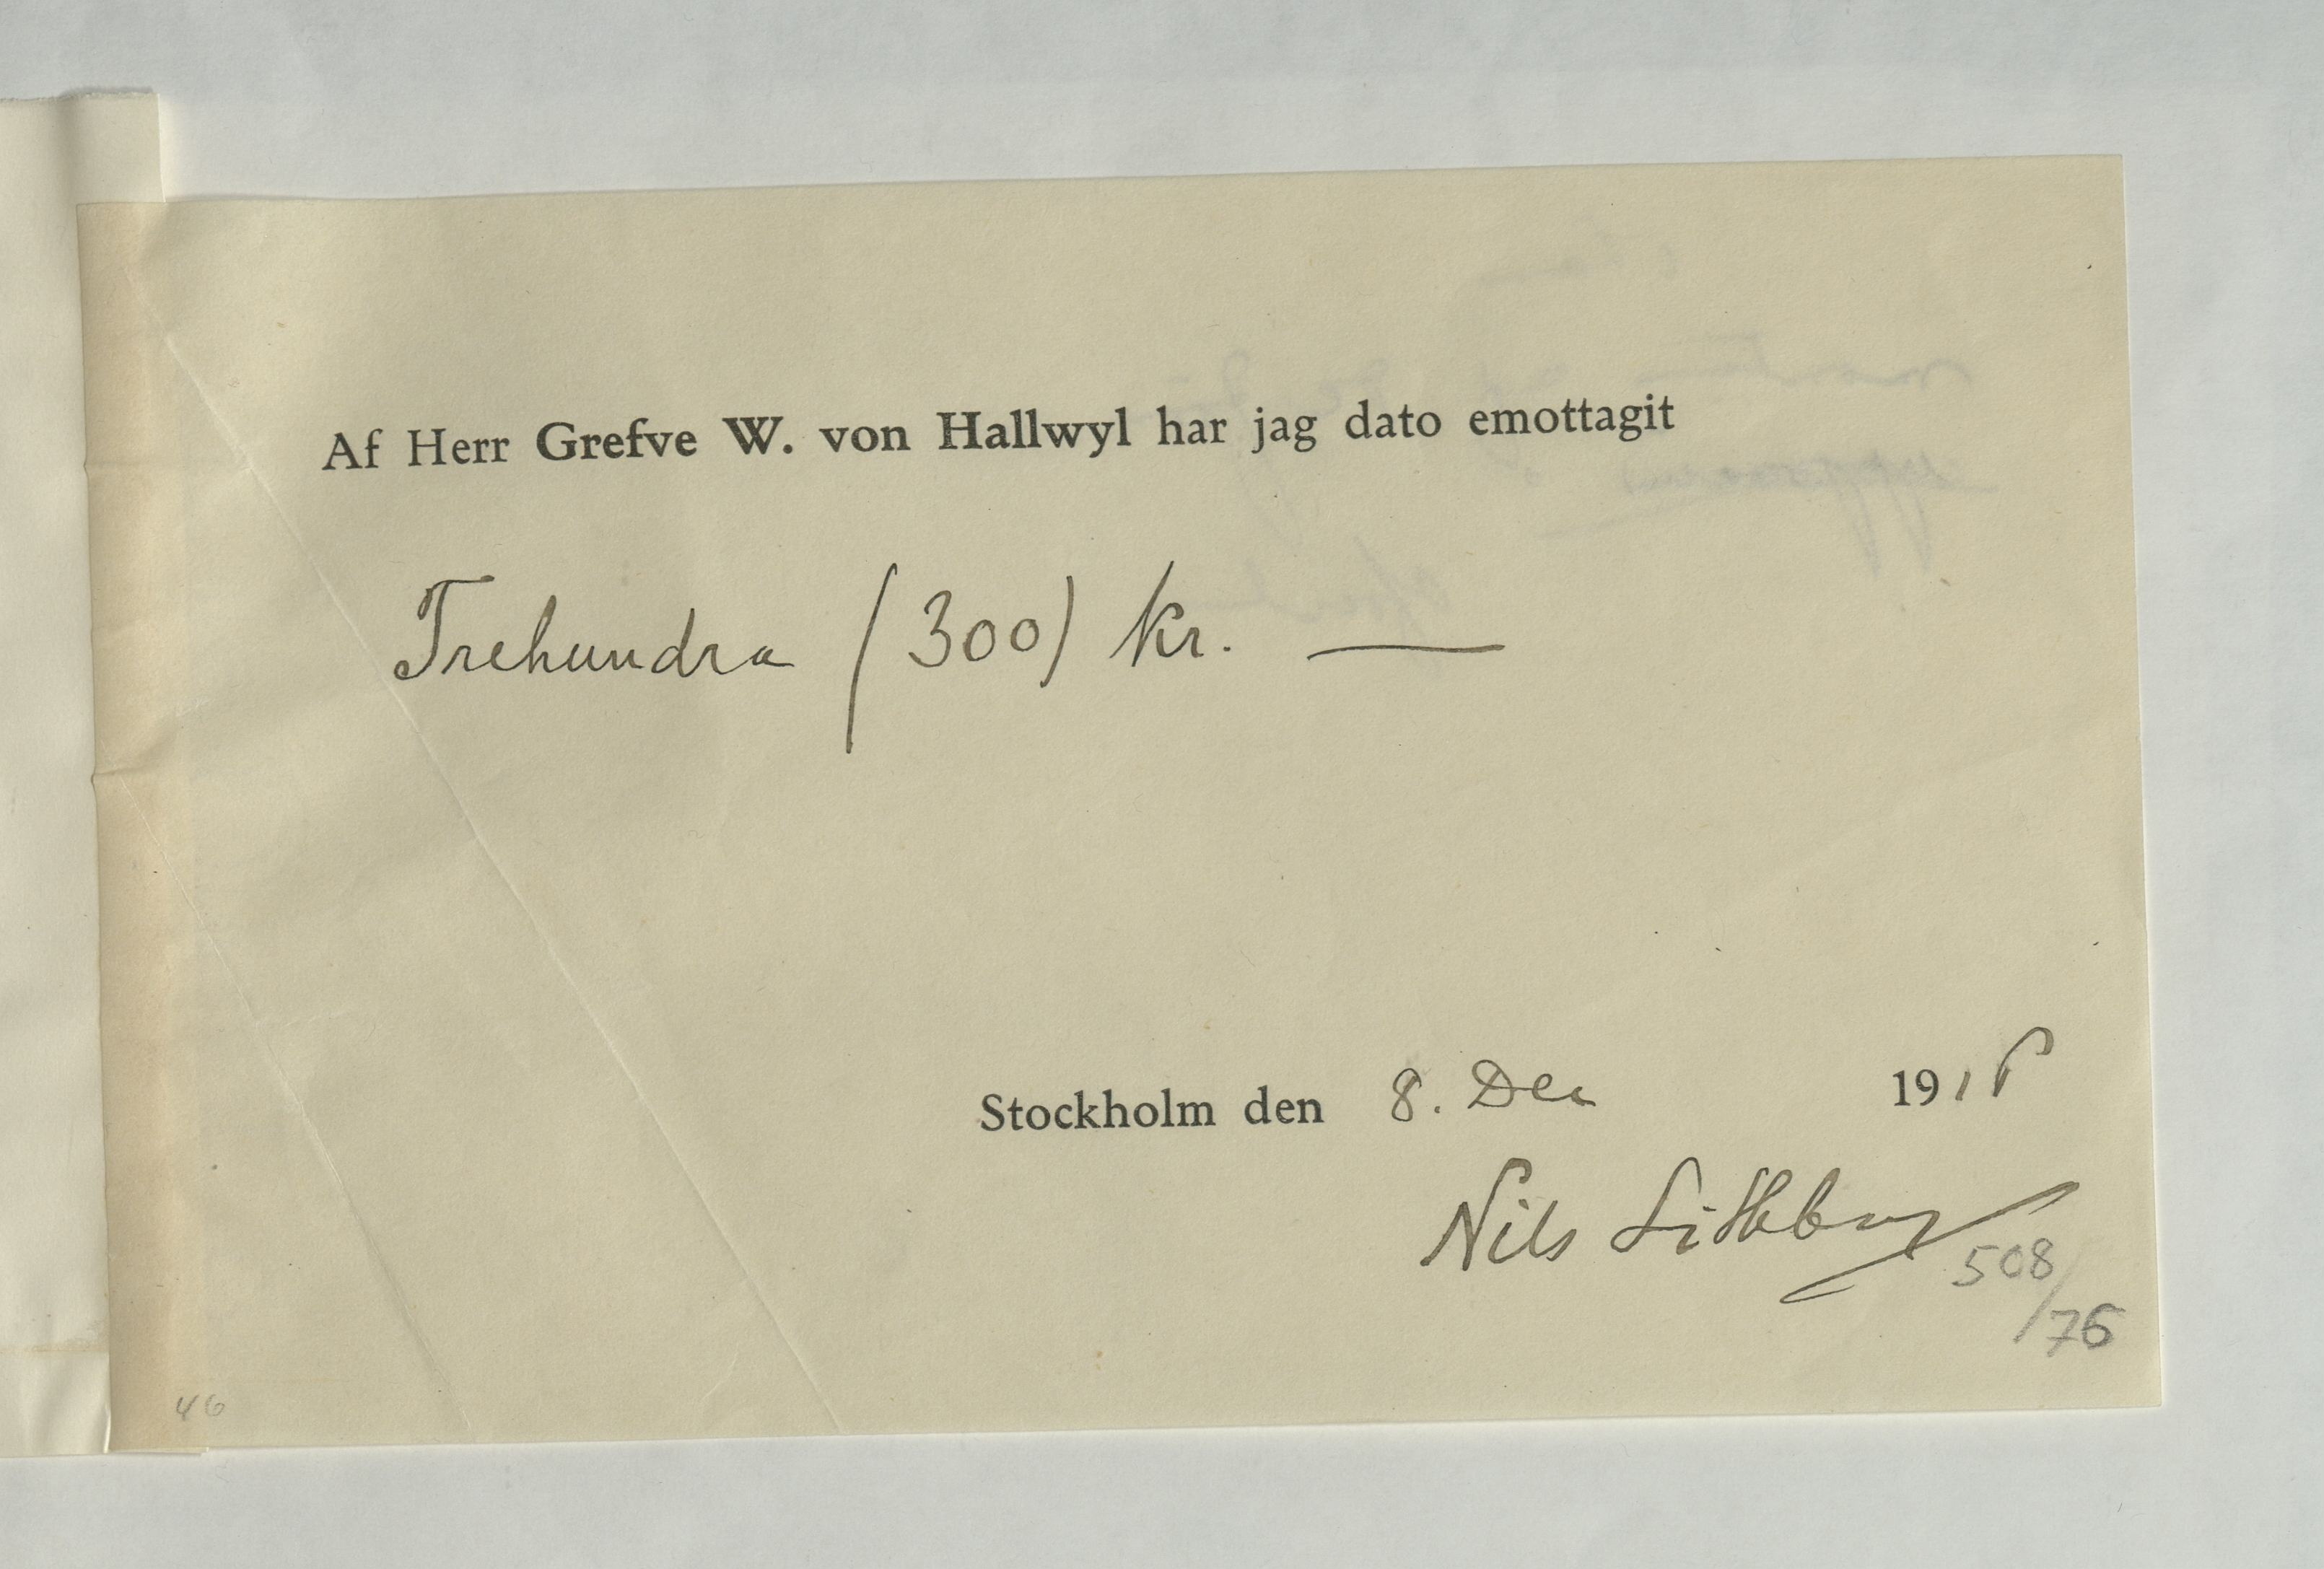 Af Herr Grefve W. von Hallwyl har jag dato emottagit
Trehundra (300) kr. —
Stockholm den 8. Dec 191
Nils Lithberg
508/76
46